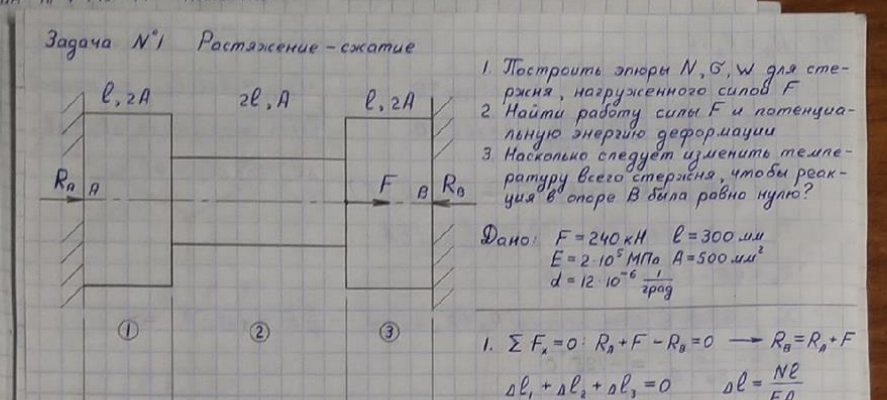 Задача №1 Растяжение - сжатие
l, 2A 2l, A l, 2A
R_A A F B R_B
① ② ③
1. Построить эпюры N, σ, w для сте-
ржня, нагруженного силой F
2 Найти работу силы F и потенциа-
льную энергию деформации
3. Насколько следует изменить темпе-
ратуру всего стержня, чтобы реак-
ция в опоре В была равна нулю?
Дано: F = 240 кН l = 300 мм
E = 2·10⁵ МПа A = 500 мм²
α = 12·10⁻⁶ 1/град
1. Σ Fₓ = 0: R_A + F − R_B = 0 → R_B = R_A + F
Δl₁ + Δl₂ + Δl₃ = 0 Δl = Nl/EA